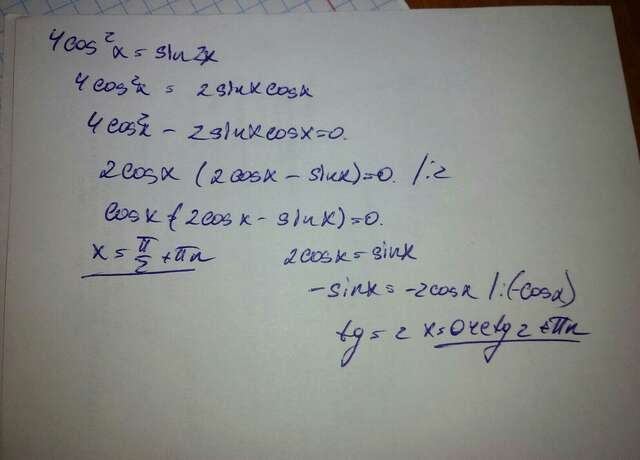 4cos²x = sin2x
4cos²x = 2sinxcosx
4cos²x - 2sinxcosx=0.
2cosx (2cosx - sinx)=0. /:2
cosx (2cosx - sinx)=0.
x = π/2 + πn 2cosx = sinx
-sinx = -2cosx /:(-cosx)
tg = 2 x=arctg 2 + πn